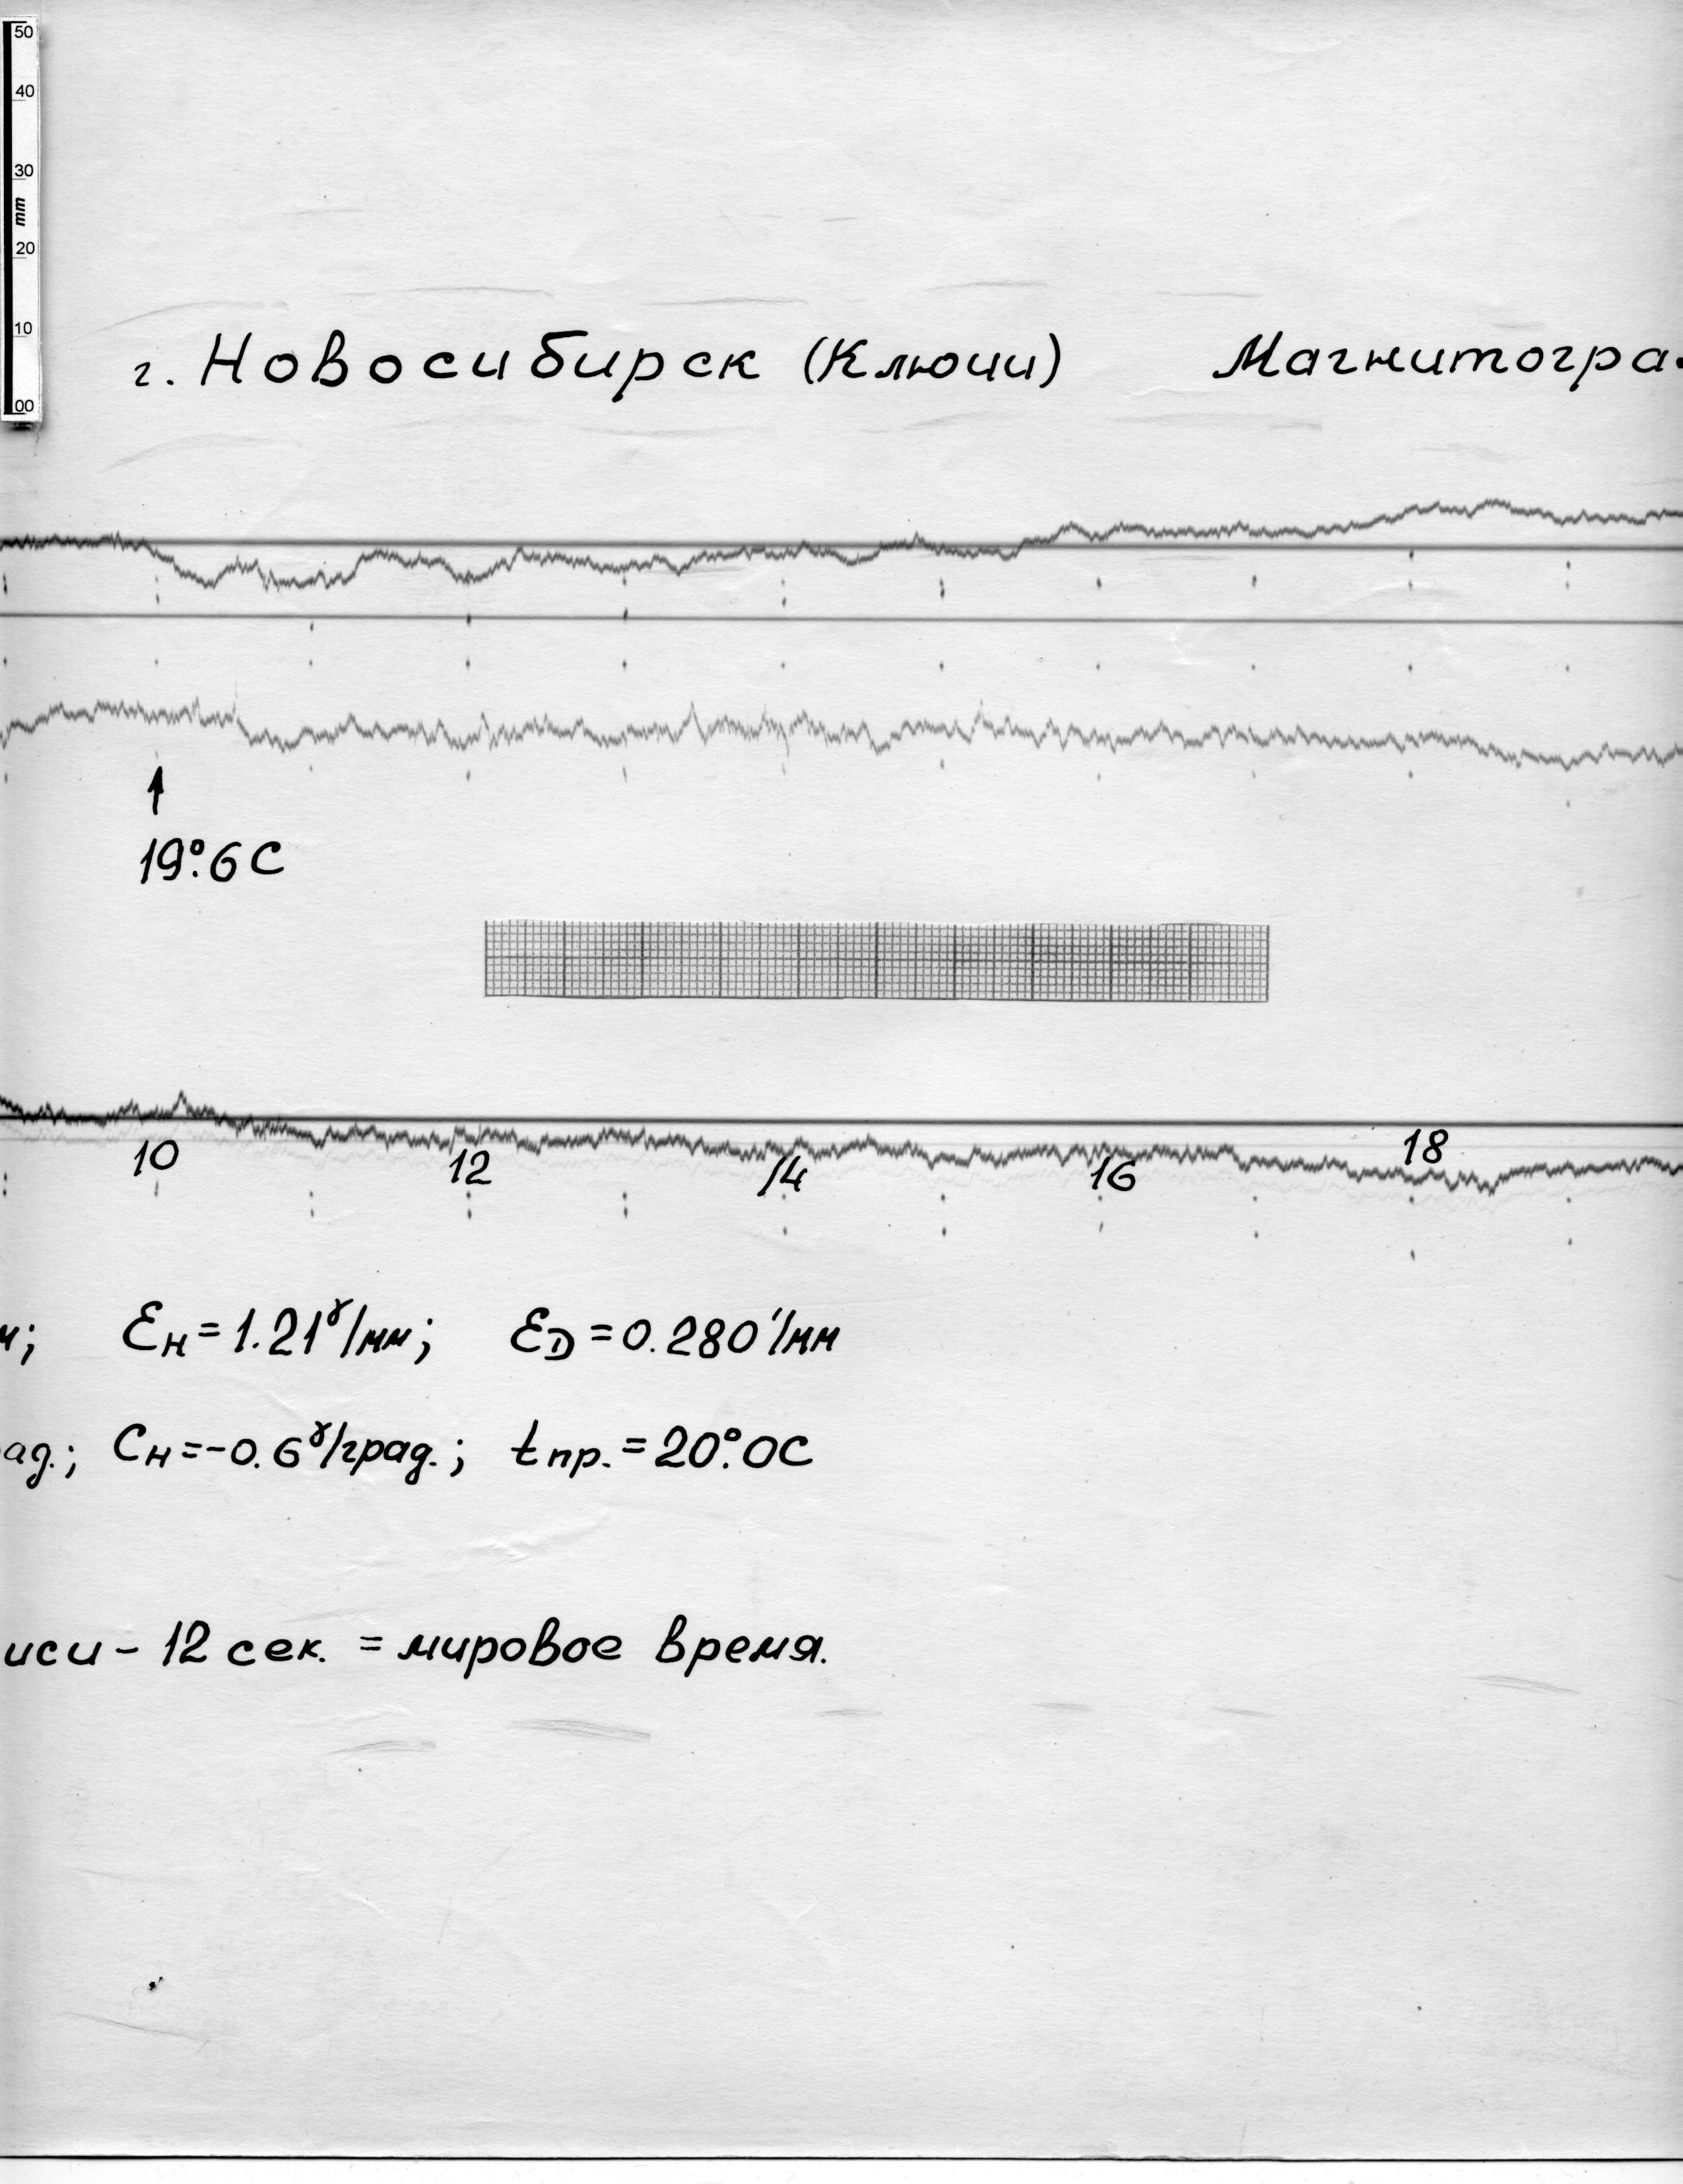 50
40
30
mm
20
10
00
г. Новосибирск (Ключи) Магнитогра
19°.6 C
10 12 14 16 18
м; Ɛн = 1.21ˠ/мм; ƐD = 0.280'/мм
ад.; Cн = -0.6ˠ/град.; tпр. = 20°.0C
иси - 12 сек. = мировое время.